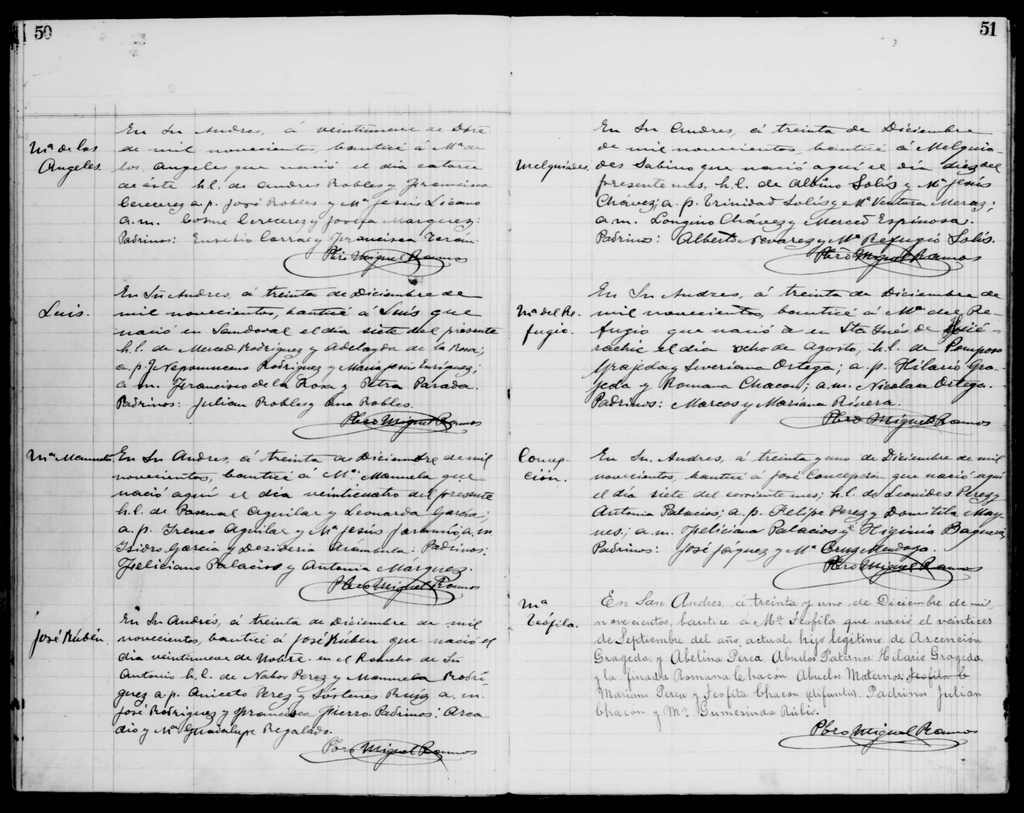 50
Ma. de los
Angeles.
En Sn Andres, á veintinueve de Dbre
de mil novecientos, bauticé á Ma. de
los Angeles que nació el dia catorce
de éste h.l. de Andres Robles y Francisca
a.p. José Robles y Ma. Jesús Lozano
a.m. Cosme y Josefa Marquez:
Padrinos: Eusebio Corral y Francisca Terán.
Pbro Miguel Ramos
Luis.
En Sn Andres, á treinta de Diciembre de
mil novecientos, bauticé á Luis que
nació en Sandoval el dia siete del presente
h.l. de Merced Rodriguez y Adelayda de la Rosa;
a.p. J. Nepomuceno Rodriguez y Maria Jesús Enriquez;
a.m. Francisco de la Rosa y Petra Parada.
Padrinos: Julian Robles y Ana Robles.
Pbro Miguel Ramos
Ma. Manuela
En Sn Andres, á treinta de Diciembre de mil
novecientos, bauticé á Ma. Manuela que
nació aquí el dia veinticuatro del presente
h.l. de Pascual Aguilar y Leonarda Garcia;
a.p. Ireneo Aguilar y Ma. Jesús a.m.
Isidro Garcia y Desideria Armenta: Padrinos:
Feliciano Palacios y Antonia Marquez.
Pbro Miguel Ramos
José Rubén.
En Sn Andrés, á treinta de Diciembre de mil
novecientos, bauticé á José Rúben que nació el
dia veintinueve de Nobre. en el Rancho de Sn
Antonio h.l. de Nabor Perez y Manuela Rodrí
guez a.p. Aniceto Perez y Sóstenes a.m.
José Rodriguez y Francisca Fierro. Padrinos: Arca
dio y Ma. Guadalupe Regalado.
Pbro Miguel Ramos
51
Melquiades.
En Sn Andres, á treinta de Diciembre
de mil novecientos, bauticé á Melquia-
des Sabino que nació aquí el dia diez del
presente mes, h.l. de Albino Solís y Ma. Jesús
Chávez; a.p. Trinidad Solis y Ma. Ventura Meraz;
a.m. Longino Chávez y Merced Espinosa.
Padrinos: Alberto Nevarez y Ma. Refugio Solís.
Pbro Miguel Ramos
Ma. del Re-
fugio.
En Sn Andres, á treinta de Diciembre de
mil novecientos, bauticé á Ma. del Re-
fugio que nació en Sta Inés de
rachic el dia ocho de Agosto, h.l. de Pomposo
Grajeda y Severiana Ortega; a.p. Hilario Gra-
jeda y Romana Chacon; a.m. Nicolasa Ortega.
Padrinos: Marcos y Mariana Rivera.
Pbro Miguel Ramos
Concep-
ción.
En Sn Andres, á treinta y uno de Diciembre de mil
novecientos, bauticé á José Concepción que nació aquí
el dia siete del corriente mes; h.l. de Leonides Perez y
Antonia Palacios; a.p. Felipe Perez y Domitila May-
nes; a.m. Feliciano Palacios é Higinia
Padrinos: José Jáquez y Ma. Cruz Mendoza.
Pbro Miguel Ramos
Ma.
Teófila.
En San Andres, á treinta y uno de Diciembre de mil
novecientos, bautice á Ma. Teofila que nació el vantires
de Septiembre del año actual, hijo legítimo de Ascencion
Grageda y Abelina Perea Abuelos Paternos Hilario Grageda
y la finada Romana Chacon Abuelos Maternos Teofido C
Mariano Perea y Teofila Chacon difuntos. Padrinos Julian
Chacon y Ma. Gumesinda Rubio.
Pbro Miguel Ramos